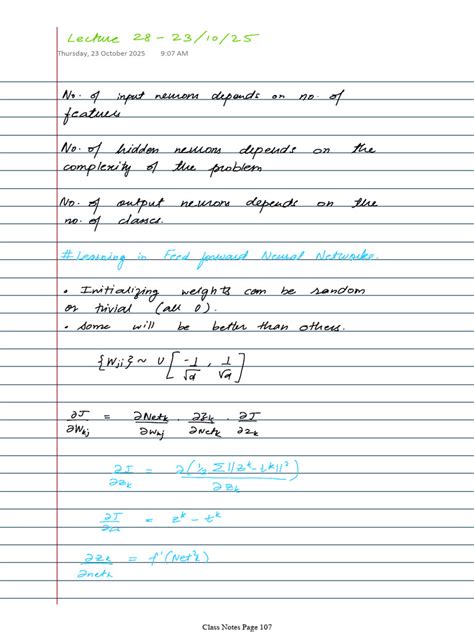 Lecture 28 - 23/10/25
Thursday, 23 October 2025 9:07 AM
No. of input neurons depends on no. of
features
No. of hidden neurons depends on the
complexity of the problem
No. of output neurons depends on the
no. of classes.
# Learning in Feed forward Neural Networks.
• Initializing weights can be random
or trivial (all 0).
• Some will be better than others.
{Wji} ~ U [-1/√d, 1/√d]
∂J/∂Wkj = ∂Netk/∂Wkj · ∂zk/∂Netk · ∂J/∂zk
∂J/∂zk = ∂(1/2 Σ||zk-tk||²)/∂zk
= zk - tk
∂zk/∂netk = f'(Netk)
Class Notes Page 107